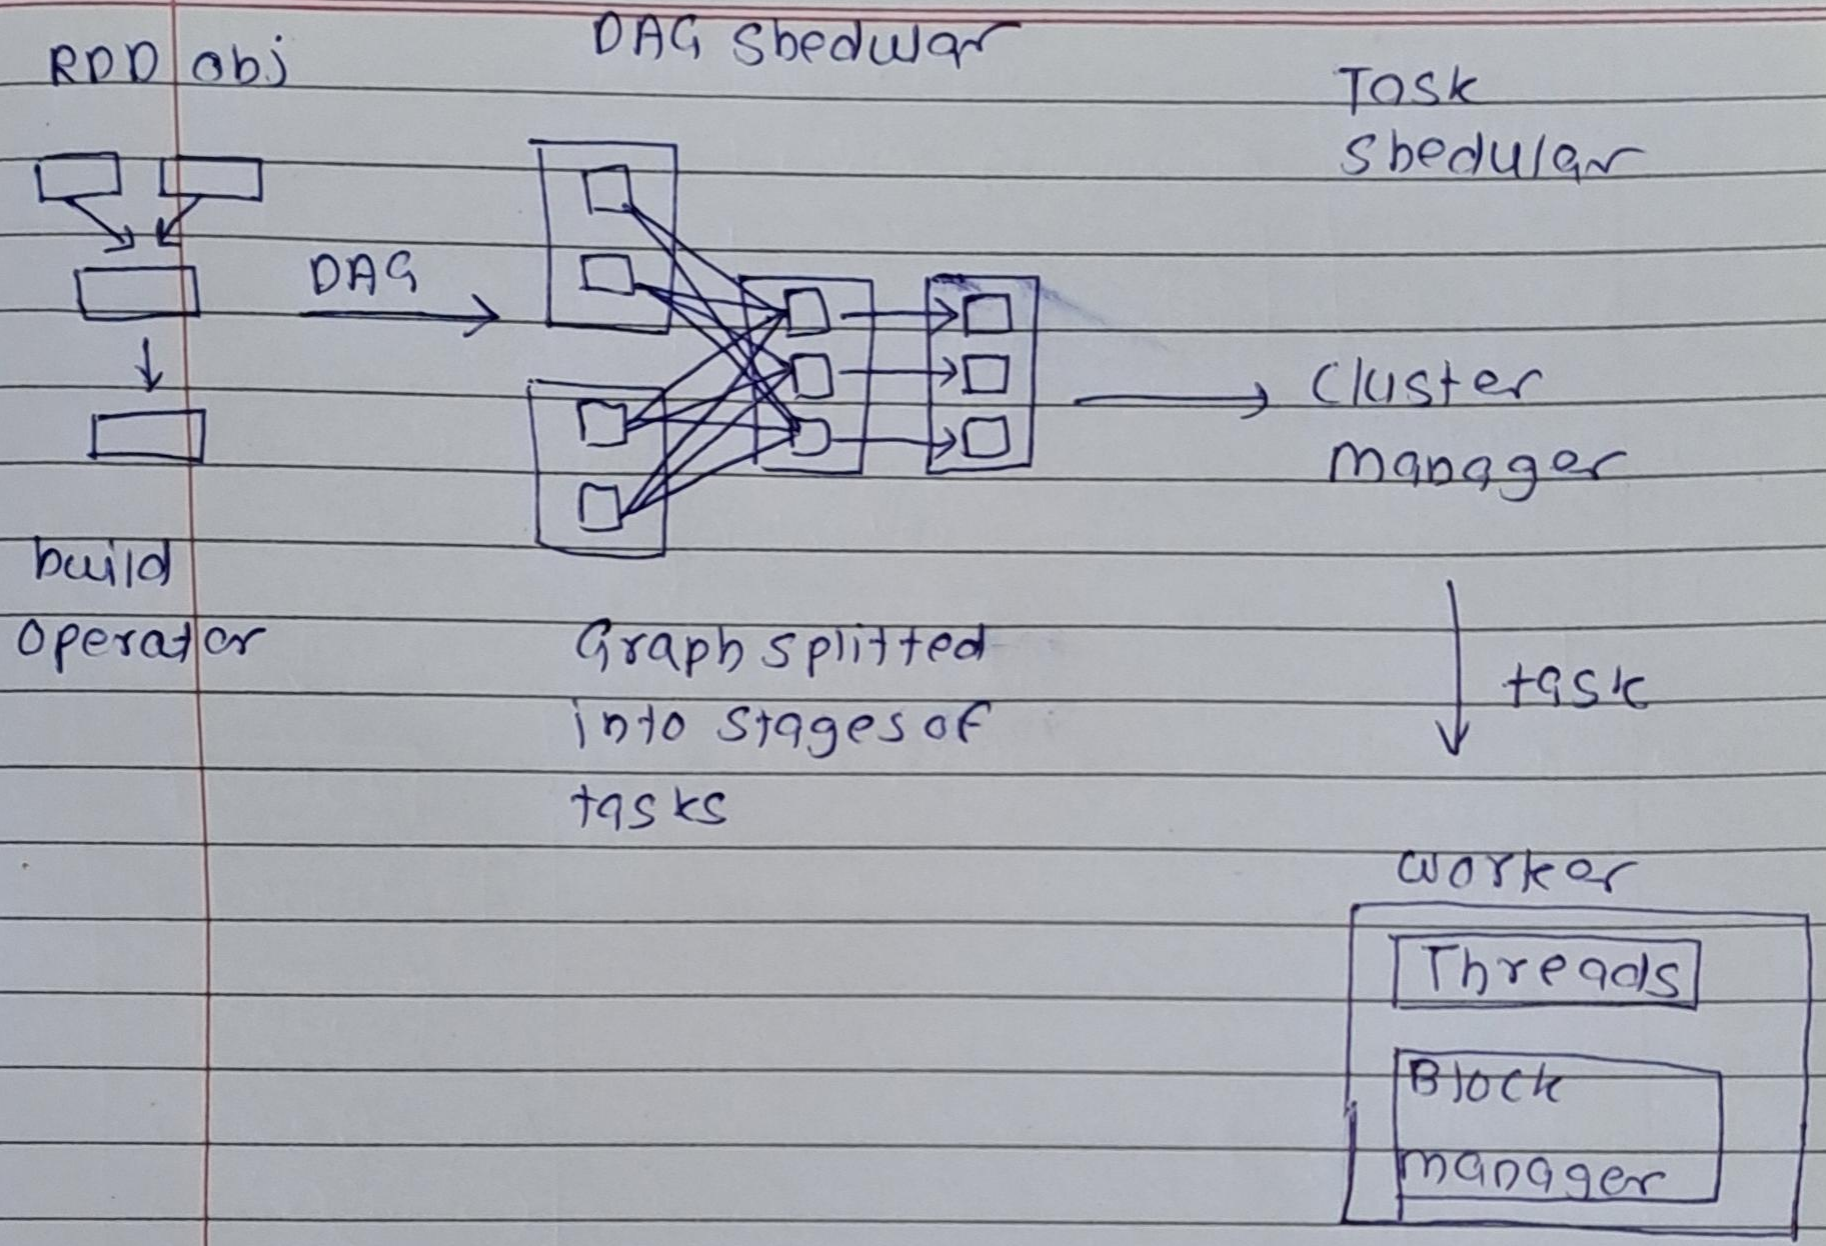 RDD obj
DAG Sbedular
Task
Sbedular
DAG
Cluster
manager
build
operator
Graph splitted
into stages of
tasks
task
worker
Threads
Block
manager